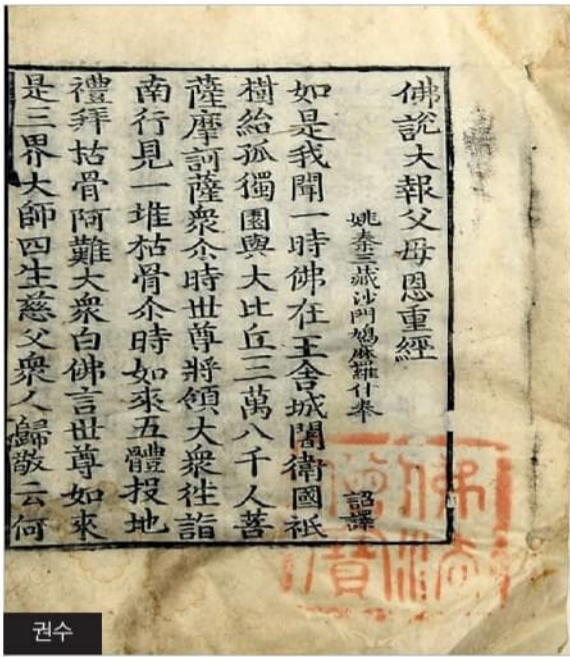 佛說大報父母恩重經
姚秦三藏沙門鳩摩羅什奉 詔譯
如是我聞一時佛在王舍城闍衛國祇
樹給孤獨園與大比丘三萬八千人菩
薩摩訶薩衆尒時世尊將領大衆徃詣
南行見一堆枯骨尒時如來五體投地
禮拜枯骨阿難大衆白佛言世尊如來
是三界大師四生慈父衆人歸敬云何
佛法
僧寶
권수